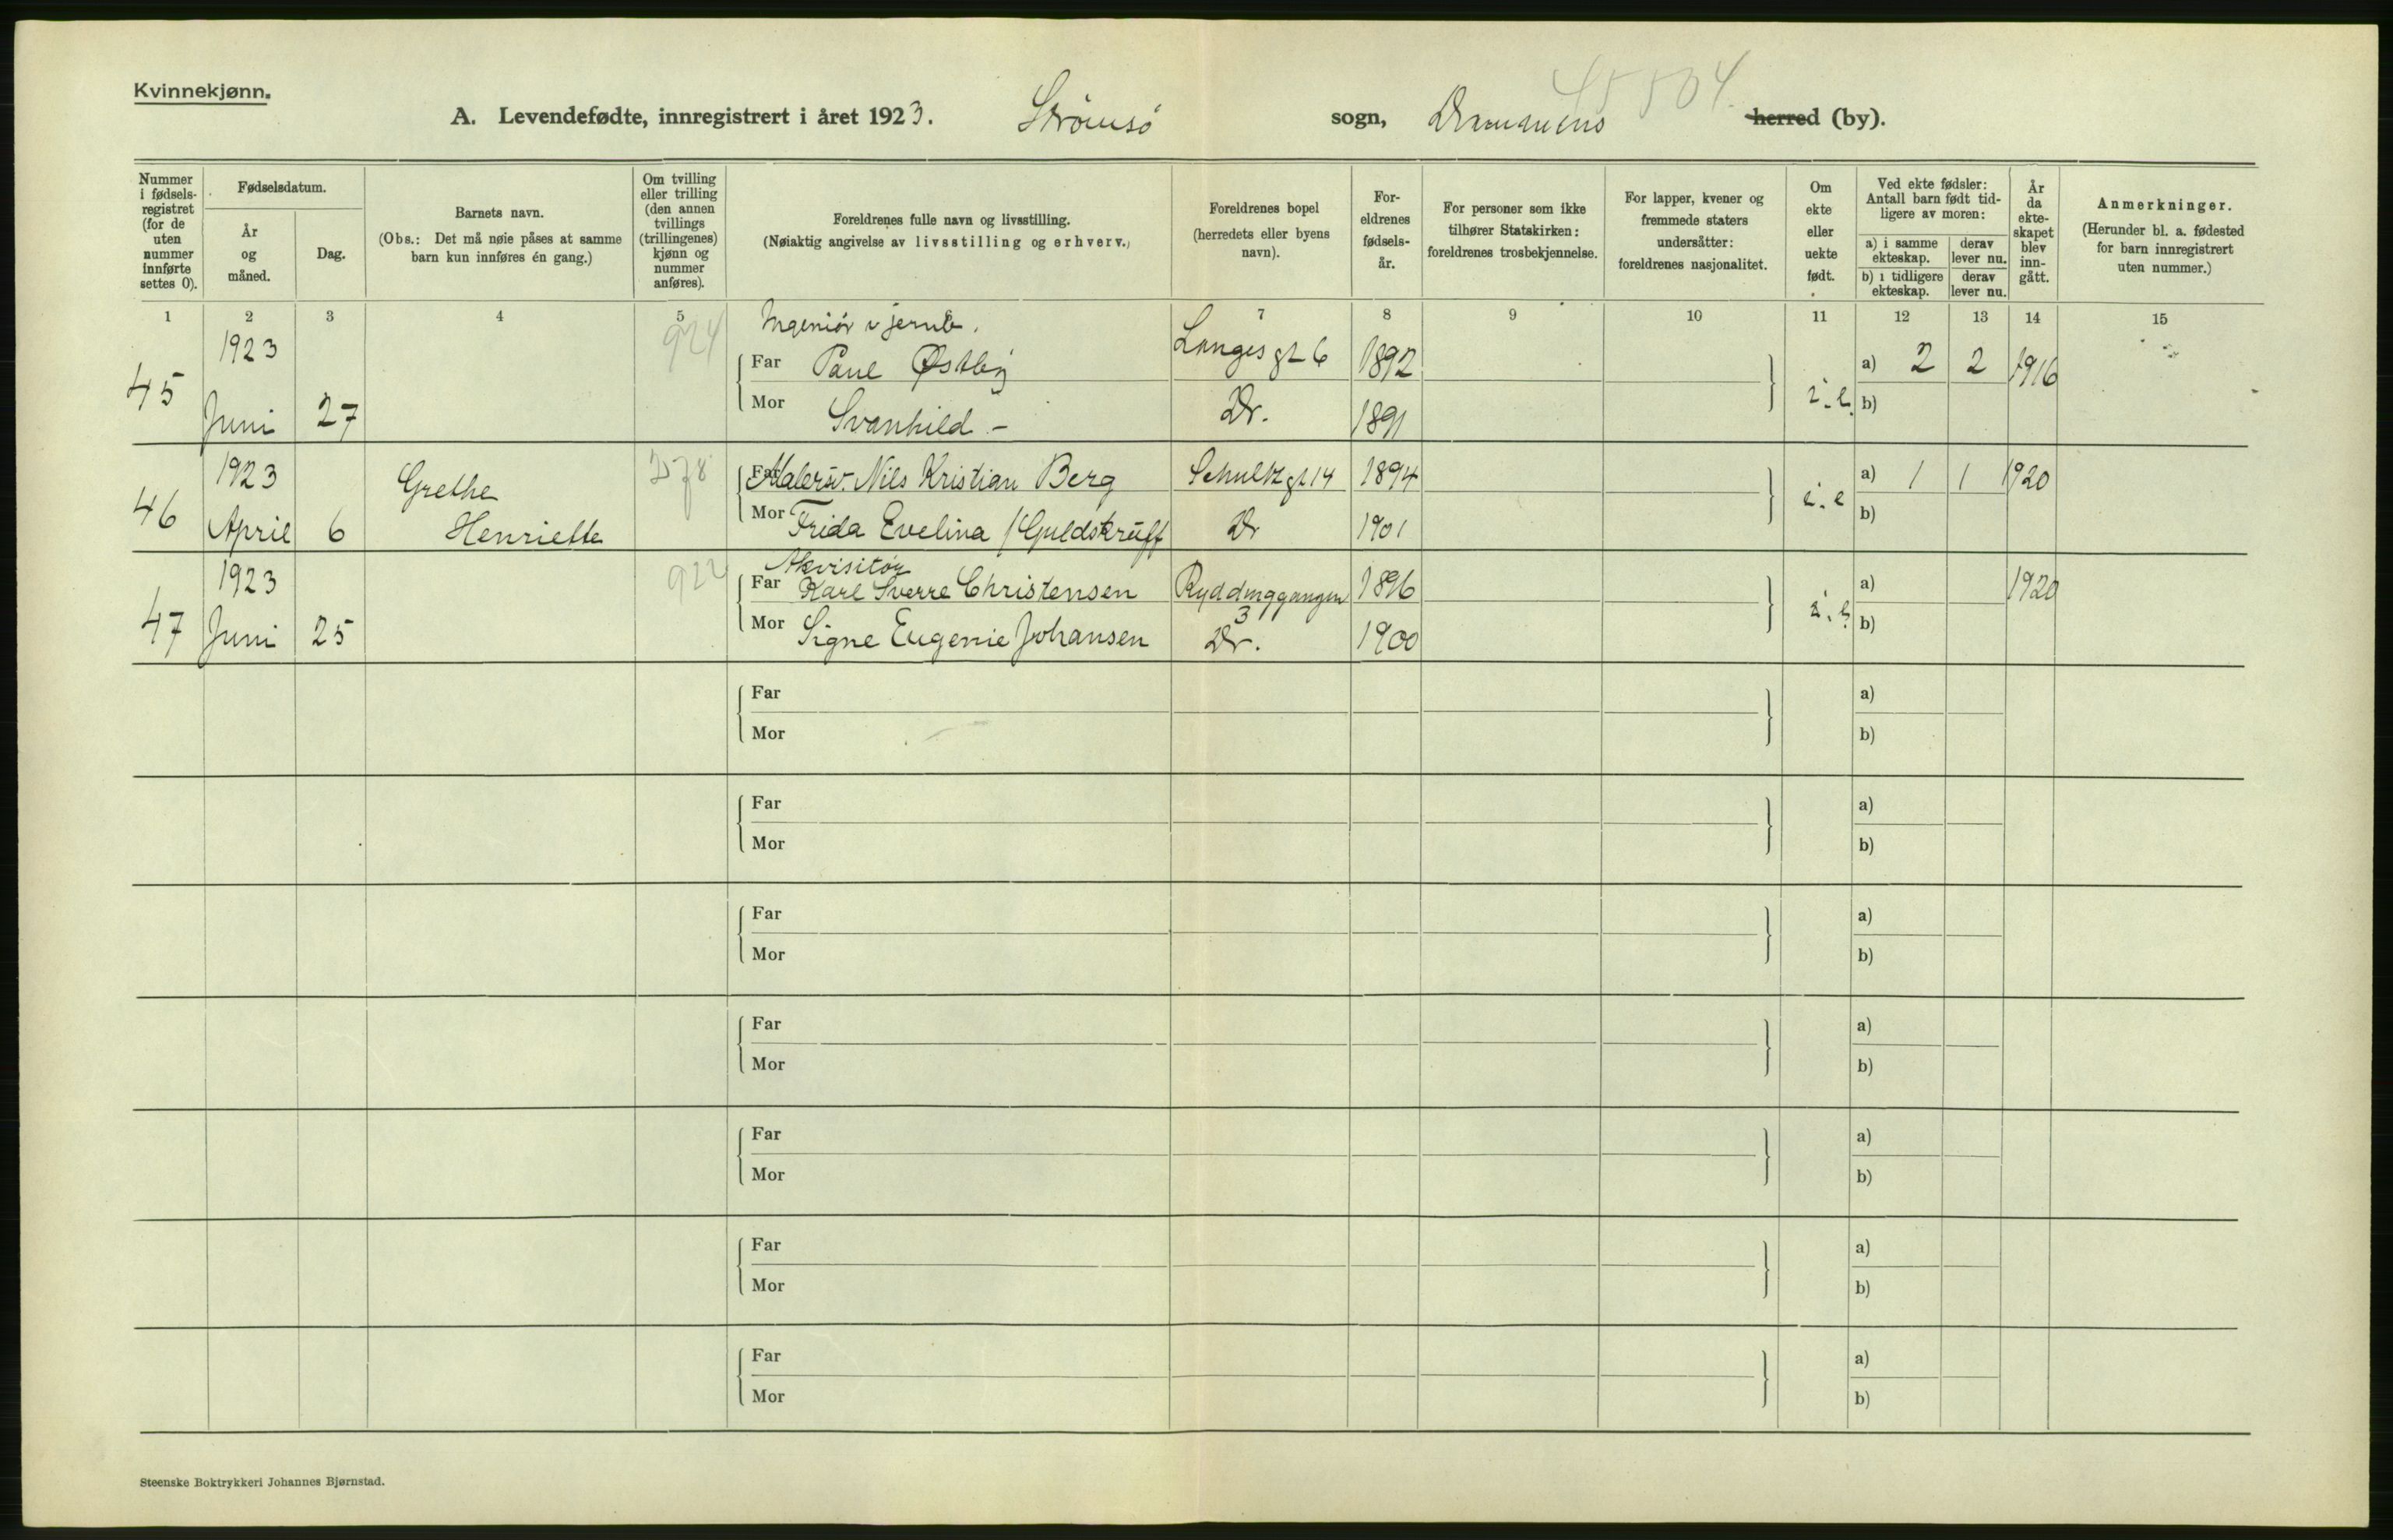 Kvinnekjønn.
A. Levendefødte, innregistrert i året 1923. Strømsø sogn, Drammens herred (by).
45504.
Nummer i fødsels-registret (for de uten nummer innførte settes 0).
Fødselsdatum.
År og måned.
Dag.
Barnets navn.
(Obs.: Det må nøie påses at samme barn kun innføres én gang.)
Om tvilling eller trilling (den annen tvillings (trillingenes) kjønn og nummer anføres).
Foreldrenes fulle navn og livsstilling.
(Nøiaktig angivelse av livsstilling og erhverv.)
Foreldrenes bopel (herredets eller byens navn).
For-eldrenes fødsels-år.
For personer som ikke tilhører Statskirken: foreldrenes trosbekjennelse.
For lapper, kvener og fremmede staters undersåtter: foreldrenes nasjonalitet.
Om ekte eller uekte født.
Ved ekte fødsler: Antall barn født tid-ligere av moren:
a) i samme ekteskap.
derav lever nu.
b) i tidligere ekteskap.
derav lever nu.
År da ekte-skapet blev inn-gått.
Anmerkninger.
(Herunder bl. a. fødested for barn innregistrert uten nummer.)
1 2 3 4 5 6 7 8 9 10 11 12 13 14 15
45 1923 Juni 27
924
Ingeniør v jernb.
Far Paul Østby Langes gt 6 1892
Mor Svanhild - Dr. 1891
i. e. a) 2 2 1916
b)
46 1923 April 6 Grethe Henriette
Far Malersv. Nils Kristian Berg Schultz gt 14 1894
Mor Frida Evelina / Guldskruff Dr 1901
i. e a) 1 1 1920
b)
47 1923 Juni 25
Akvisitør
Far Karl Sverre Christensen Ryddinggangen 3 1896
Mor Signe Eugenie Johansen Dr. 1900
i. e. a) 1920
b)
Far a)
Mor b)
Far a)
Mor b)
Far a)
Mor b)
Far a)
Mor b)
Far a)
Mor b)
Far a)
Mor b)
Far a)
Mor b)
Steenske Boktrykkeri Johannes Bjørnstad.